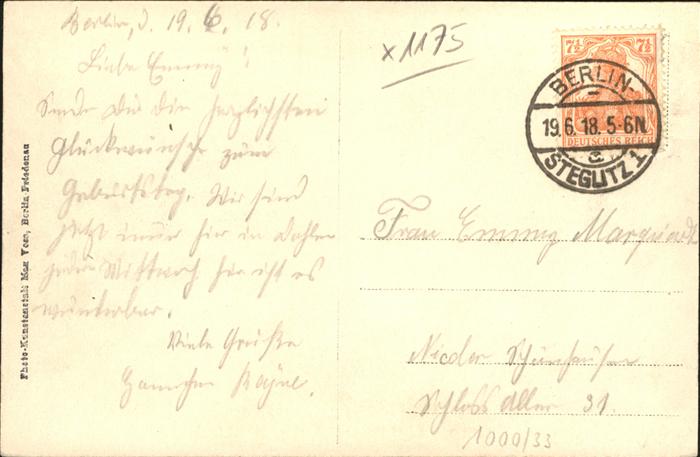 Berlin, d. 19.6.18.
Liebe Emmy!
Sende Dir die herzlichsten
Glückwünsche zum
Geburtstag. Wir sind
jetzt immer hier in Dahlem
jeden Mittwoch hier ist es
wunderbar.
Viele Grüße
Photo-Kunstanstalt Max Voss, Berlin Friedenau
x 1175
7½ 7½
DEUTSCHES REICH
BERLIN-
19.6.18.5-6N.
a
STEGLITZ 1
Frau Emmy Marquardt
Nieder Schönhausen
Schloss Allee 31.
1000/33